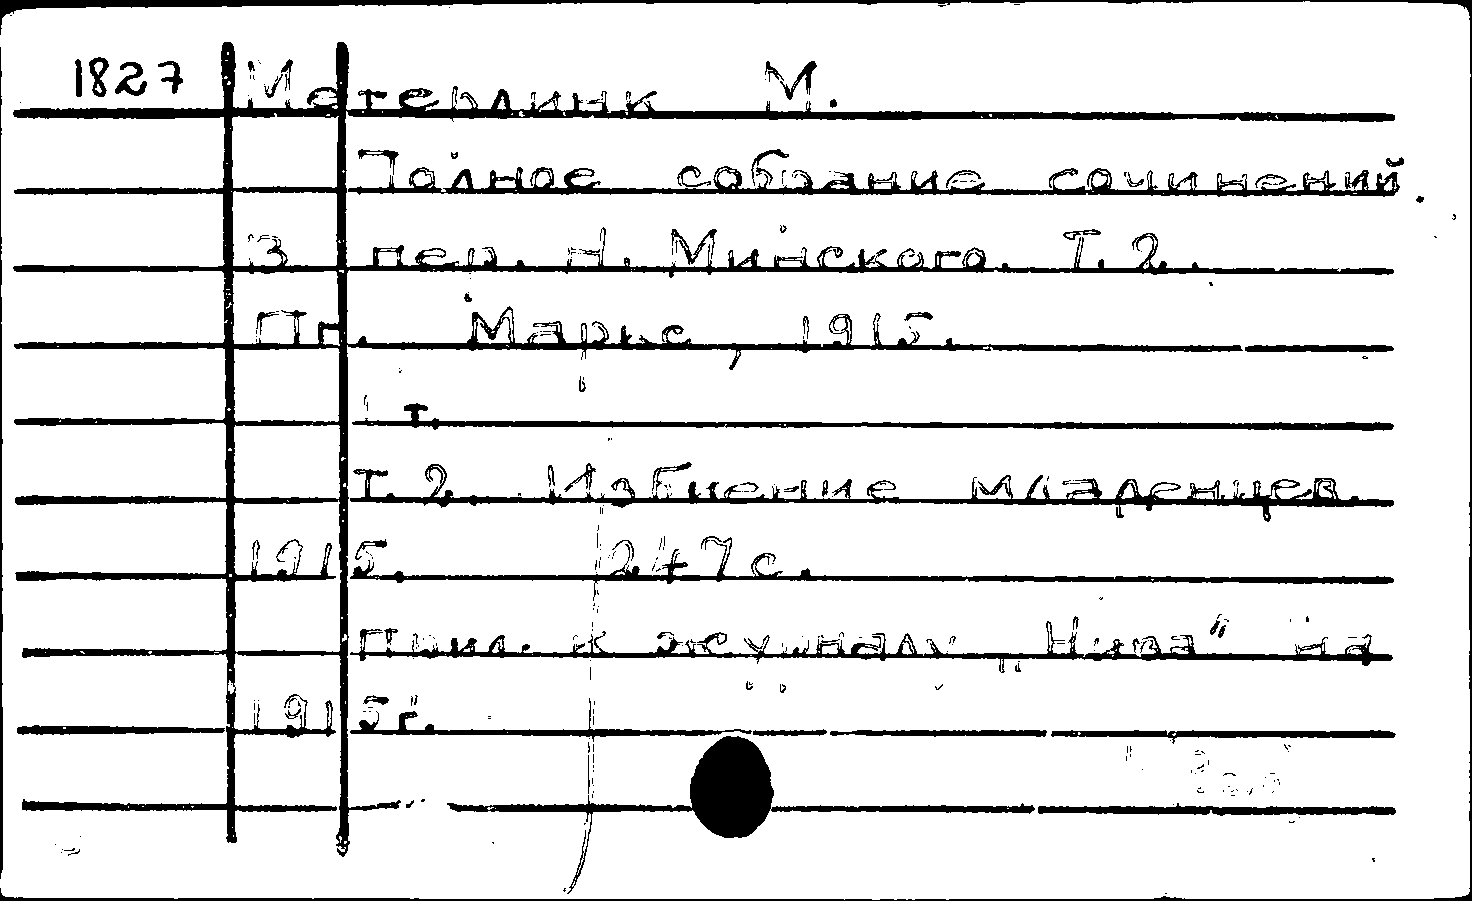 1827 Метерлинк М.
Полное собрание сочинений.
В пер. Н. Минского. Т. 2.
Пг. Маркс, 1915.
1 т.
Т. 2. Избиение младенцев.
1915. 247 с.
Прил. к журналу „Нива“ на
1915 г.